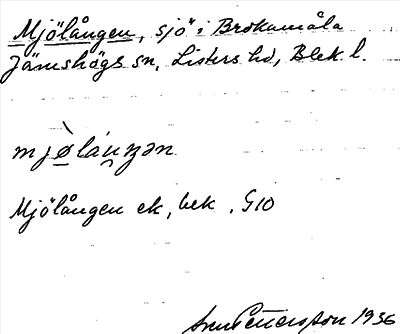 Mjölången, sjö i Brokamåla
Jämshögs sn, Listers hd, Blek. l.
mjø̀láŋən
Mjölången ek, bek. G10
Pettersson 1936